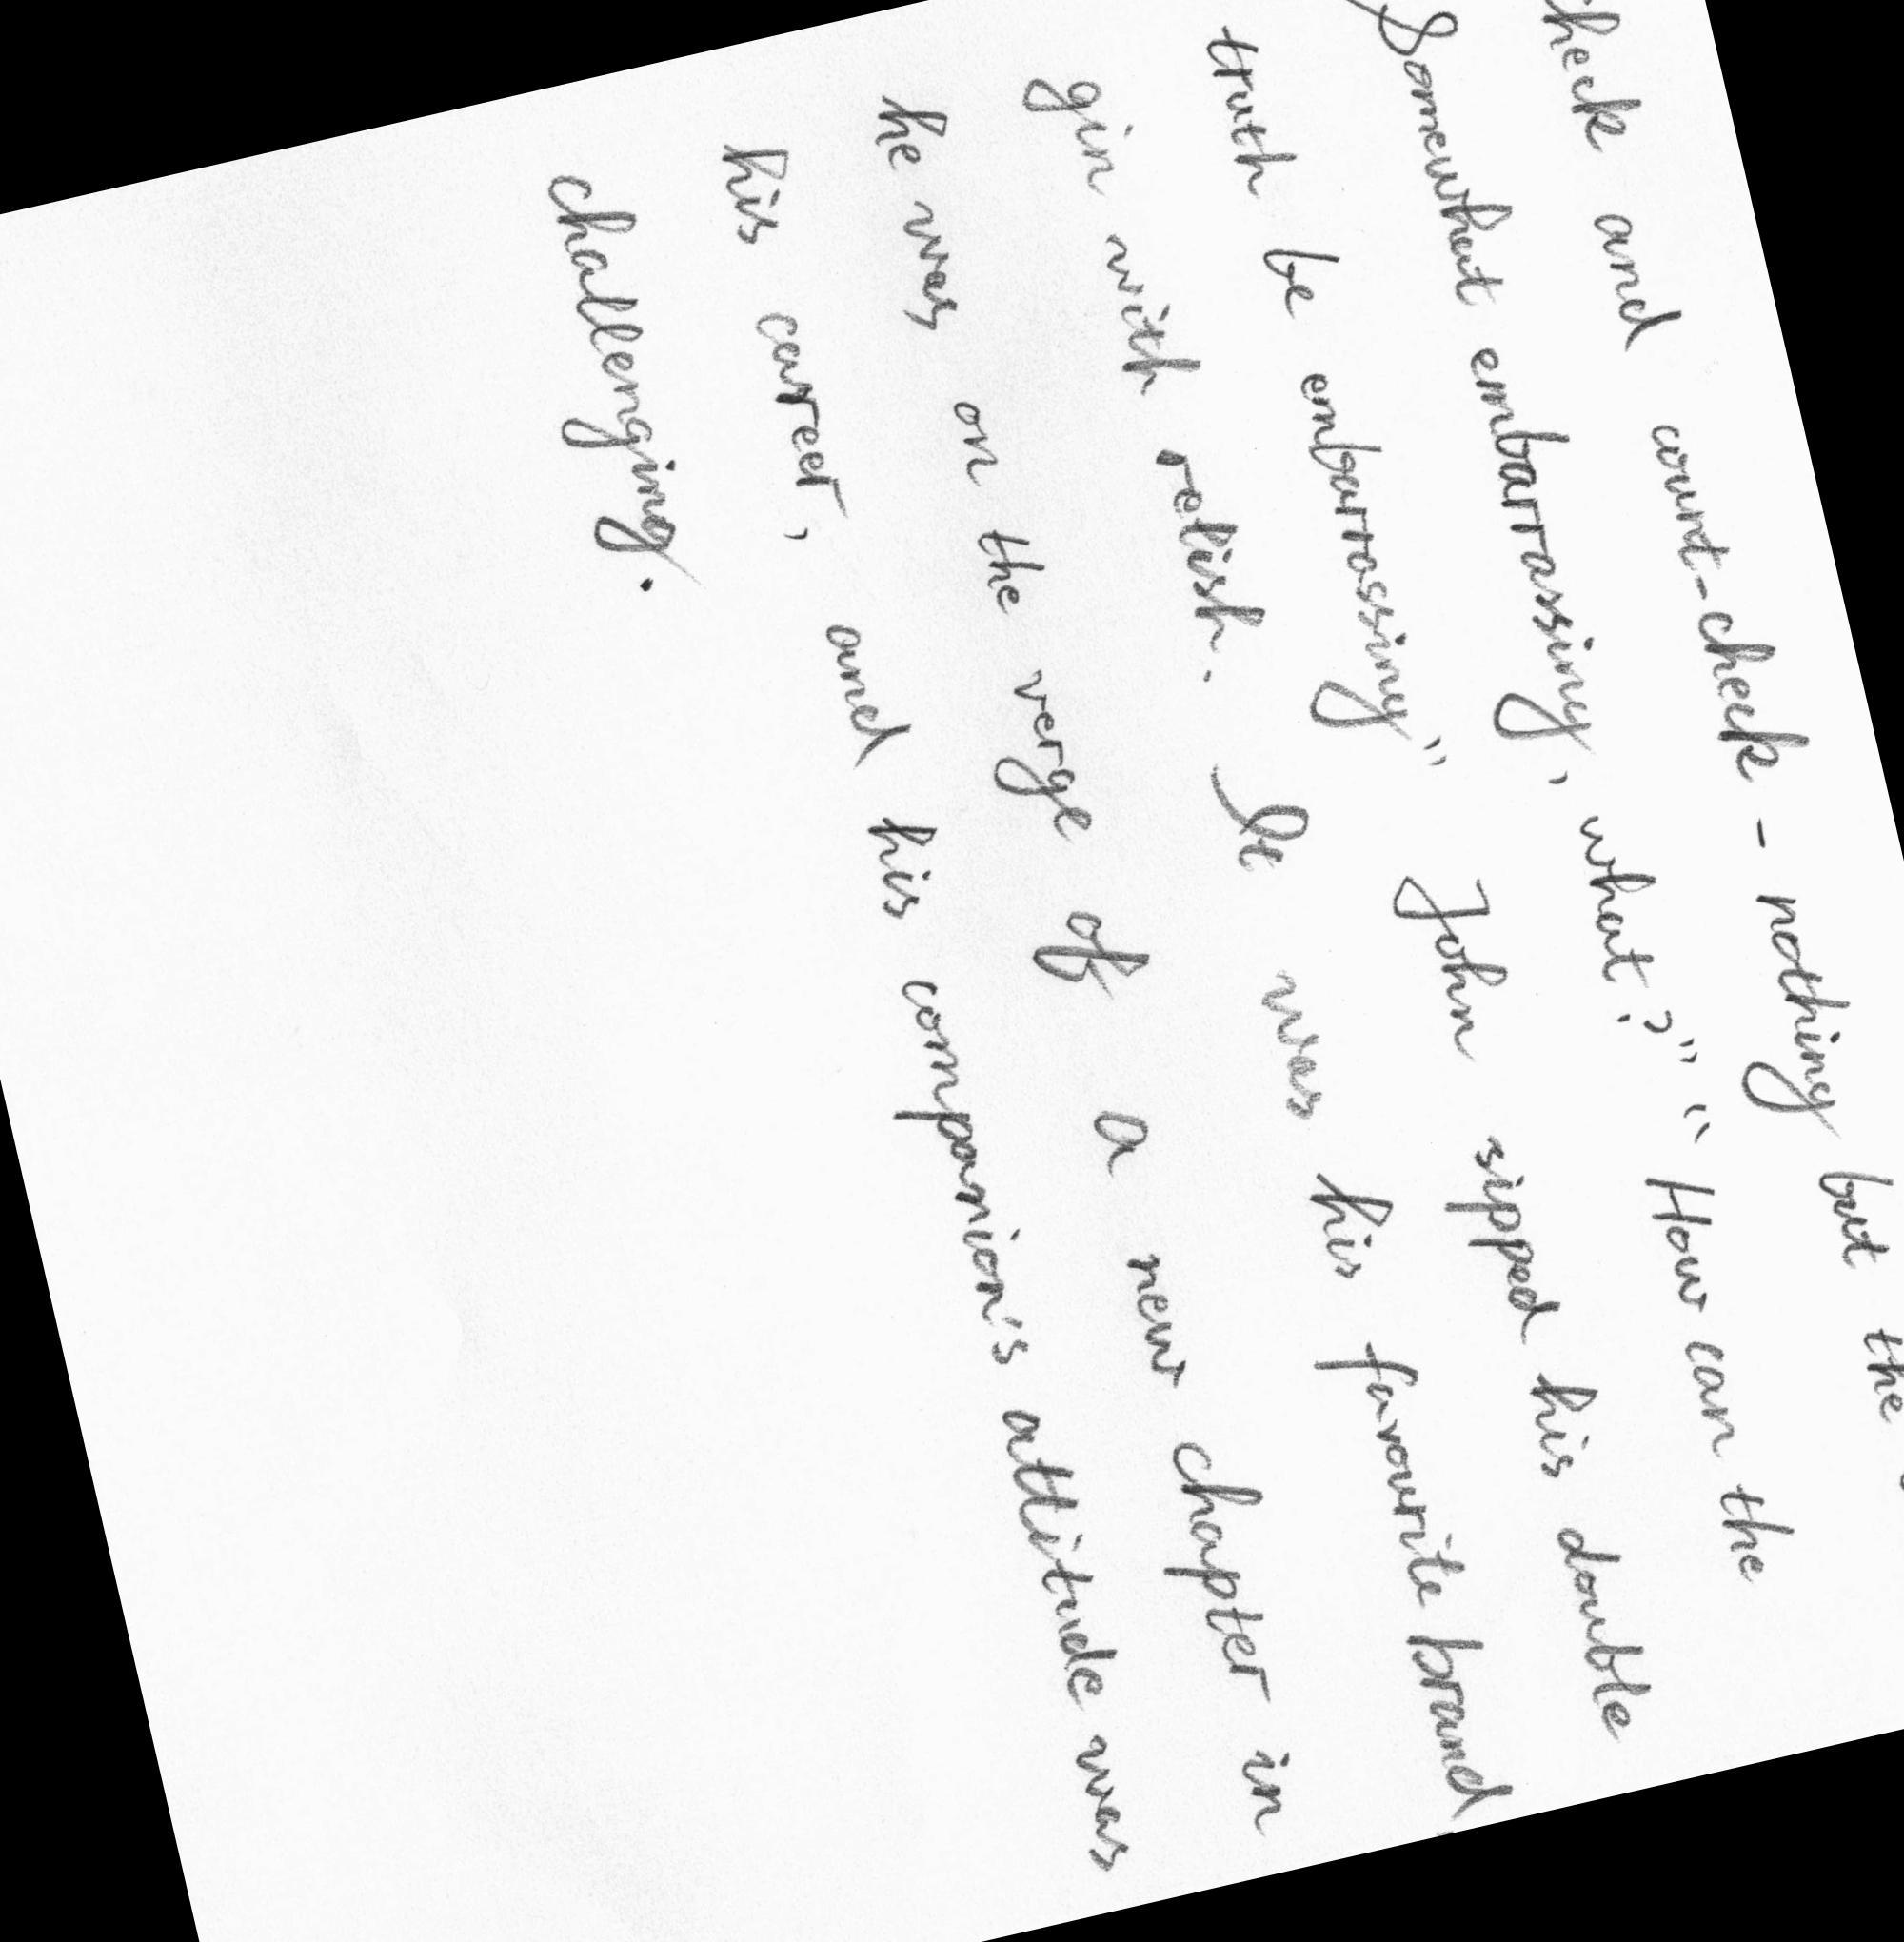 check and count-check - nothing but the
Somewhat embarrassing, what?" "How can the
truth be embarrassing" John sipped his double
gin with relish. It was his favourite brand
he was on the verge of a new chapter in
his career, and his companion's attitude was
challenging.